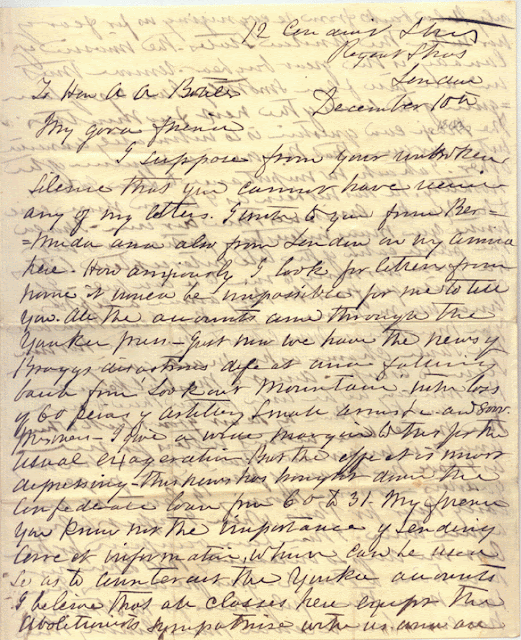 12 Conduit Street
Regent Street
London
To Hon A R Boteler
December 10th
My good friend
I suppose from your unbroken
silence that you cannot have received
any of my letters. I wrote to you from Ber=
=muda and also from London on my arrival
here. How anxiously I look for letters from
home it would be impossible for me to tell
you. All the accounts come through the
Yankee press - Just now we have the news of
Braggs disastrous defeat and falling
back from Lookout Mountain with loss
of 60 peices of artillery small arms &c and 8000
prisoners - I give a wide margin to this for the
usual exageration But the effect is most
depressing - this news has brought down the
Confederate loan from 60 to 31. My friend
you know not the importance of sending
correct information, which can be used
so as to counteract the Yankee accounts
I believe that all classes here except the
Abolitionists sympathise with us and are